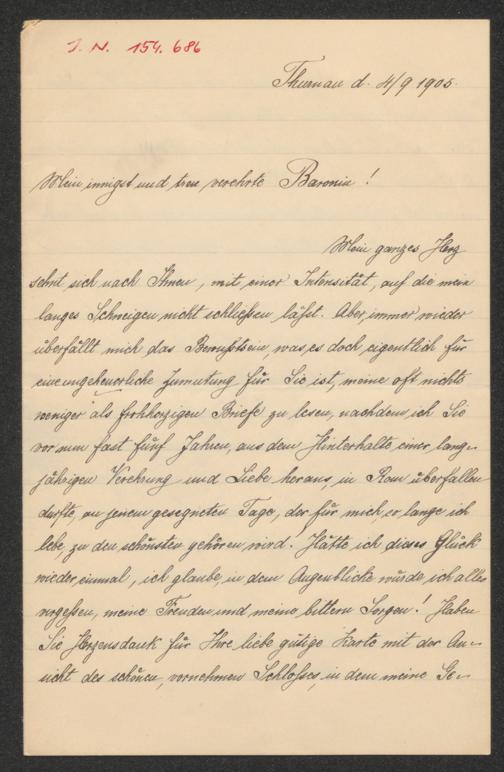 I. N. 154.686
Thurnau d. 4/9 1905.
Mein innigst und treu verehrte Baronin!
Mein ganzes Herz
sehnt sich nach Ihnen, mit einer Intensität, auf die mein
langes Schweigen nicht schließen läßt. Aber, immer wieder
überfällt mich das Bewußtsein, was es doch eigentlich für
eine ungeheuerliche Zumutung für Sie ist, meine oft nichts
weniger als frohherzigen Briefe zu lesen, nachdem ich Sie
vor nun fast fünf Jahren, aus dem Hinterhalte einer lang-
jährigen Verehrung und Liebe heraus, in Rom überfallen
durfte, an jenem gesegneten Tage, der für mich, so lange ich
lebe, zu den schönsten gehören wird! Hätte ich dieses Glück
wieder einmal, ich glaube, in dem Augenblicke würde ich alles
vergeßen, meine Freuden und meine bittern Sorgen! Haben
Sie Herzensdank für Ihre liebe gütige Karte mit der An-
sicht des schönen, vornehmen Schlosses, in dem meine Ge-